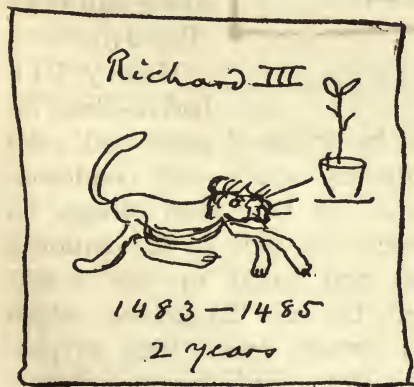 Richard III
1483–1485
2 years